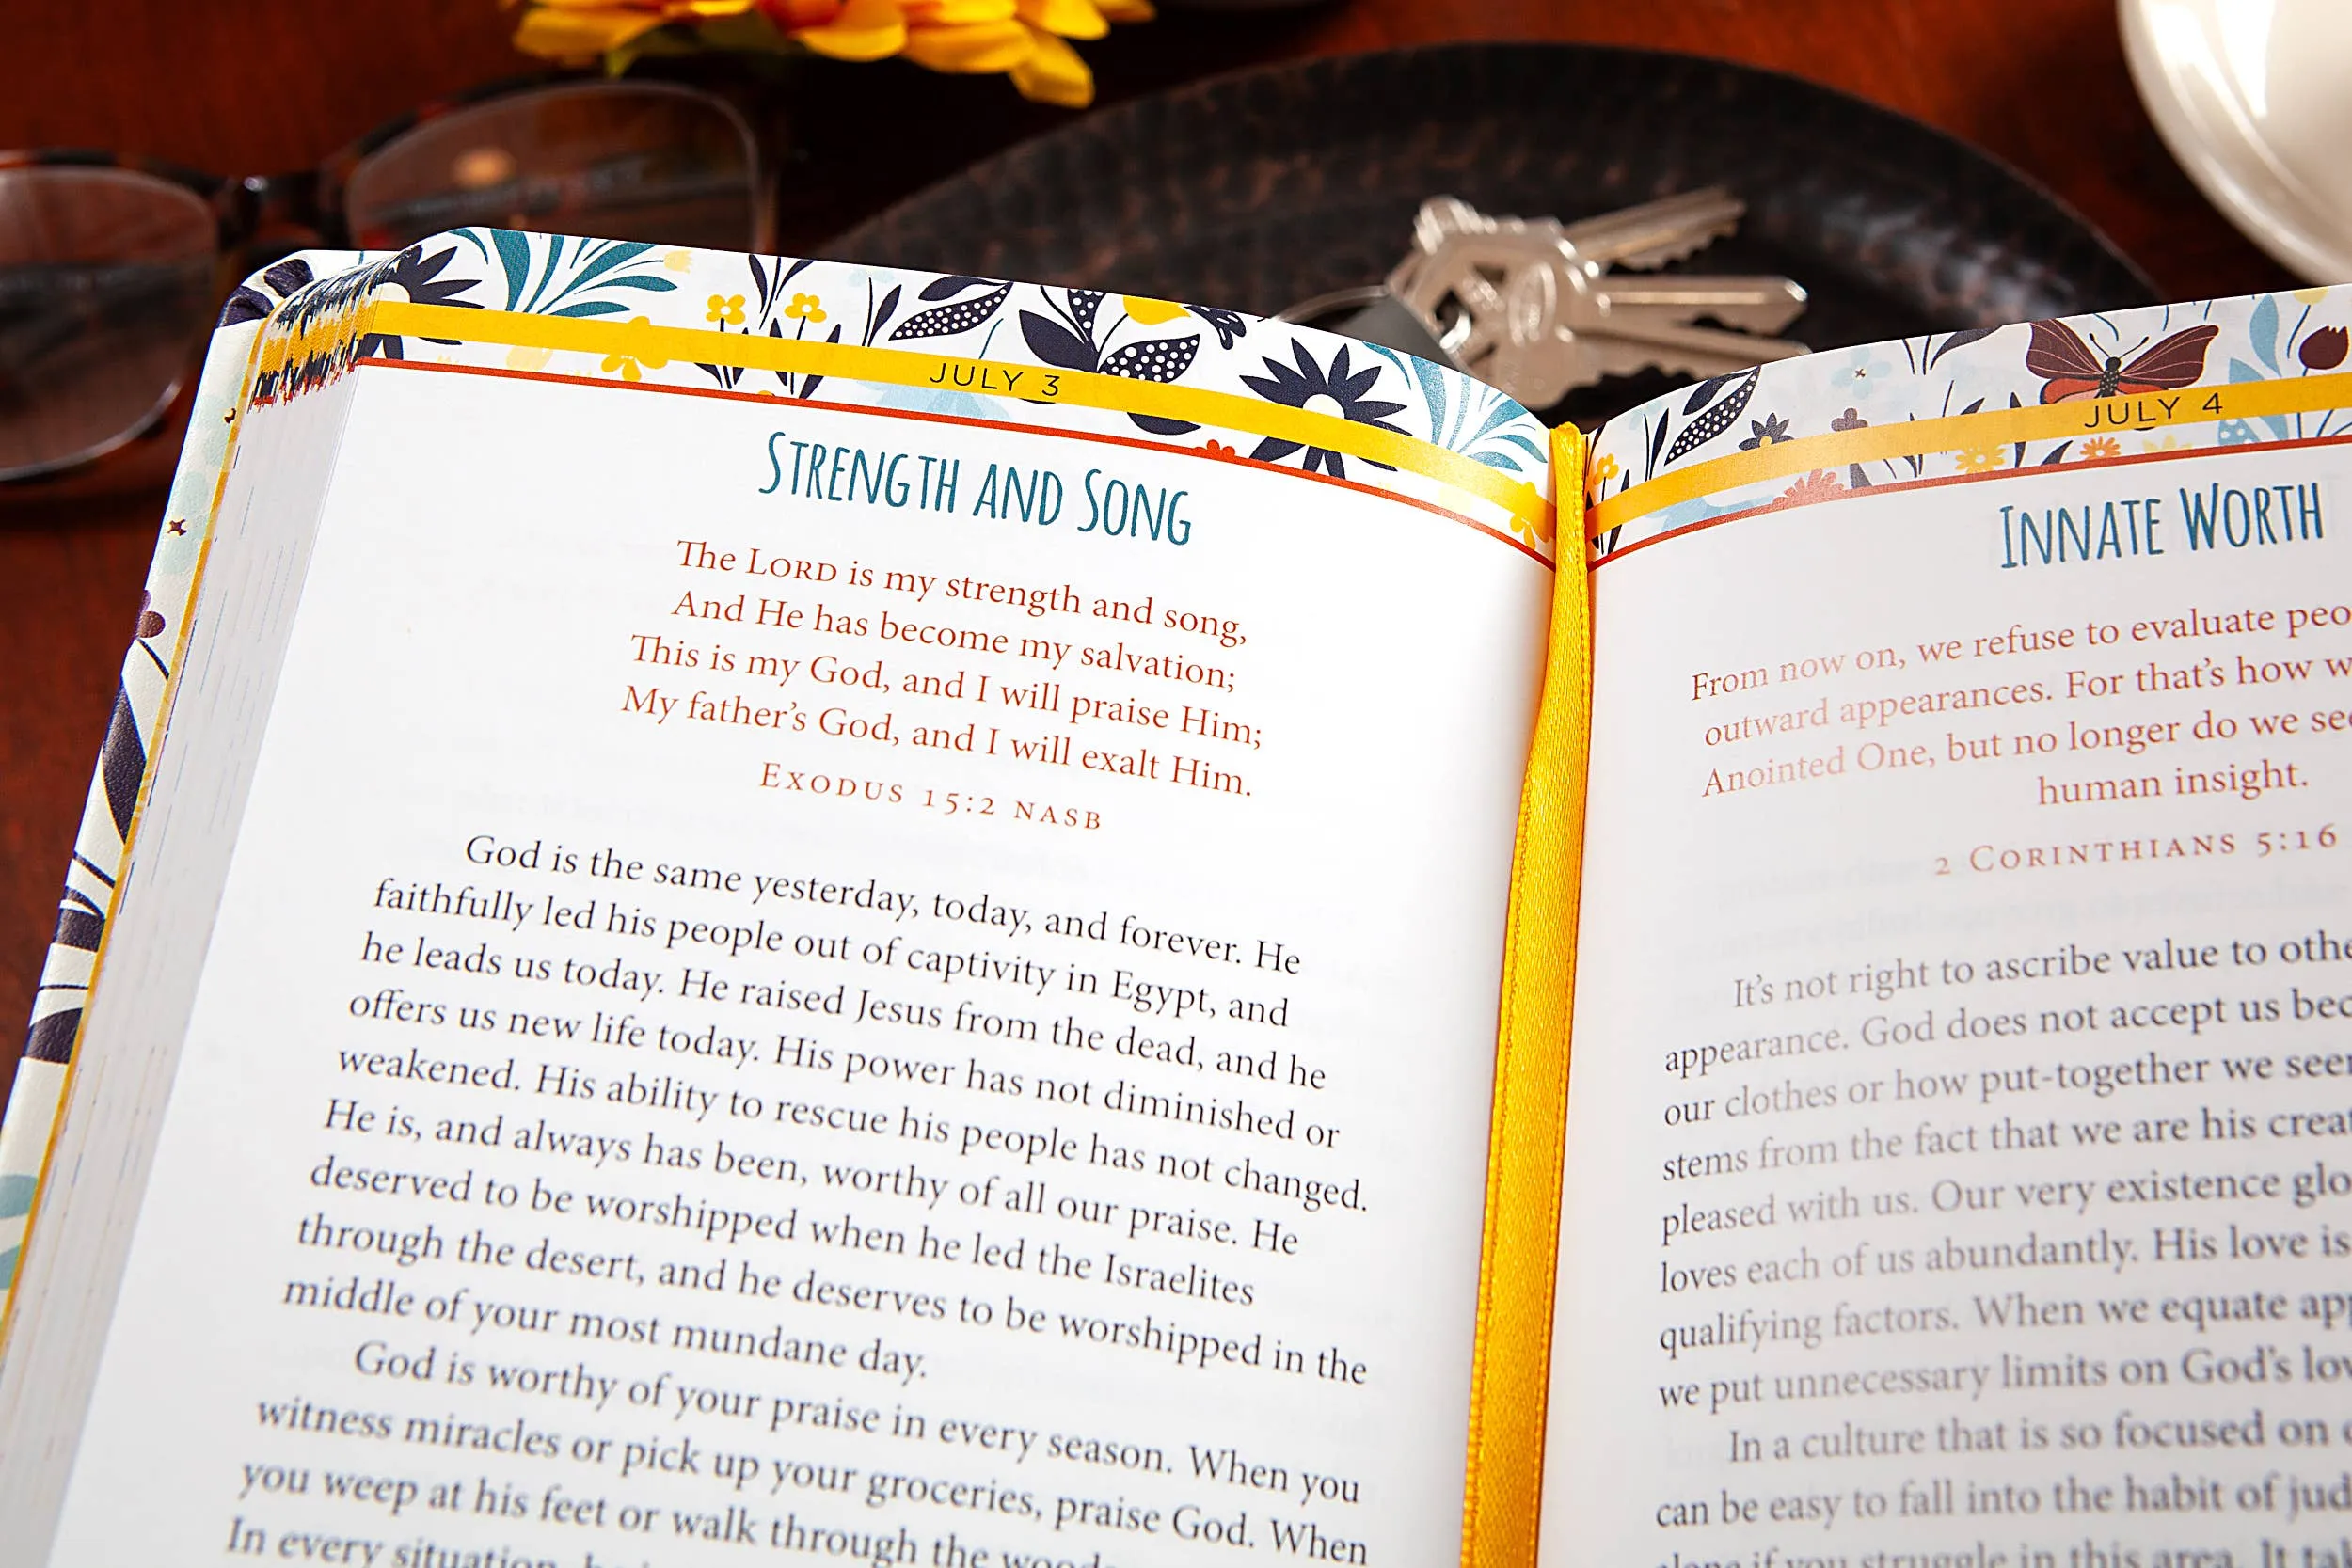 JULY 3
STRENGTH AND SONG
The LORD is my strength and song,
And He has become my salvation;
This is my God, and I will praise Him;
My father's God, and I will exalt Him.
EXODUS 15:2 NASB
God is the same yesterday, today, and forever. He
faithfully led his people out of captivity in Egypt, and
he leads us today. He raised Jesus from the dead, and he
offers us new life today. His power has not diminished or
weakened. His ability to rescue his people has not changed.
He is, and always has been, worthy of all our praise. He
deserved to be worshipped when he led the Israelites
through the desert, and he deserves to be worshipped in the
middle of your most mundane day.
God is worthy of your praise in every season. When you
witness miracles or pick up your groceries, praise God. When
you weep at his feet or walk through the
In every situation,
JULY 4
INNATE WORTH
From now on, we refuse to evaluate
outward appearances. For that's how
Anointed One, but no longer do we
human insight.
2 CORINTHIANS 5:16
It's not right to ascribe value to
appearance. God does not accept us
our clothes or how put-together we
stems from the fact that we are his
pleased with us. Our very existence
loves each of us abundantly. His love is
qualifying factors. When we equate
we put unnecessary limits on God's
In a culture that is so focused on
can be easy to fall into the habit of
if you struggle in this area. It